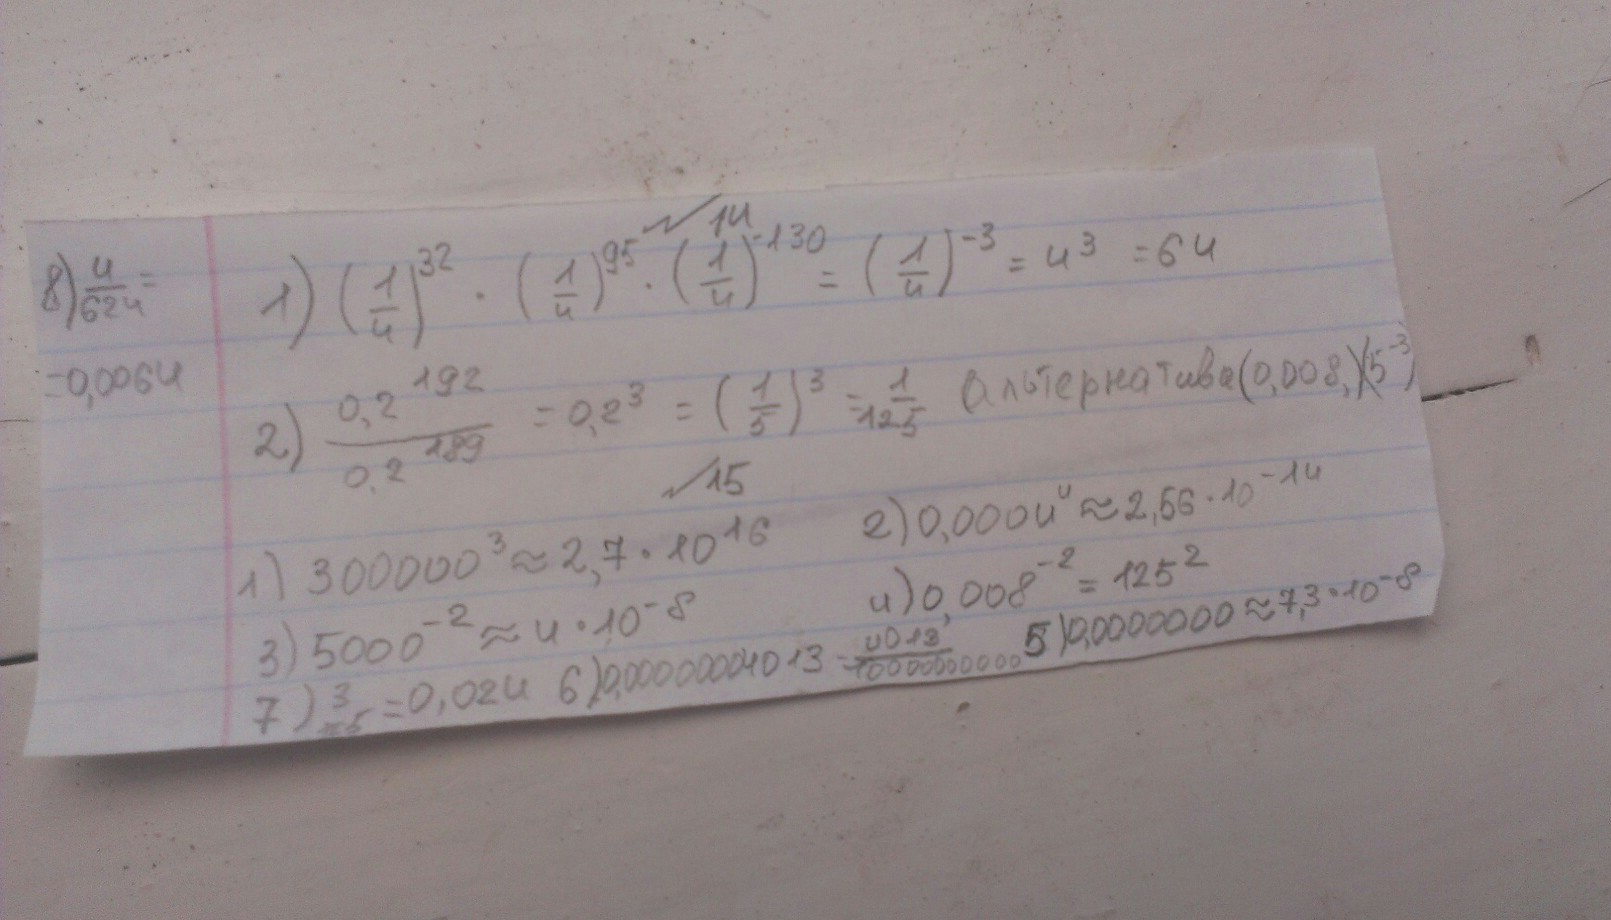 №14
1) (1/4)^32 · (1/4)^95 · (1/4)^-130 = (1/4)^-3 = 4^3 = 64
2) 0,2^192 / 0,2^189 = 0,2^3 = (1/5)^3 = 1/125 Альтернатива (0,008,)(5^-3)
№15
1) 300000^3 ≈ 2,7 · 10^16 2) 0,0004^4 ≈ 2,56 · 10^-14
3) 5000^-2 ≈ 4 · 10^-8 4) 0,008^-2 = 125^2
7) 3/ = 0,024 6) 0,00000004013 = 4013/ 5) 0,0000000 ≈ 7,3 · 10^-8
8) 4/624 =
= 0,0064